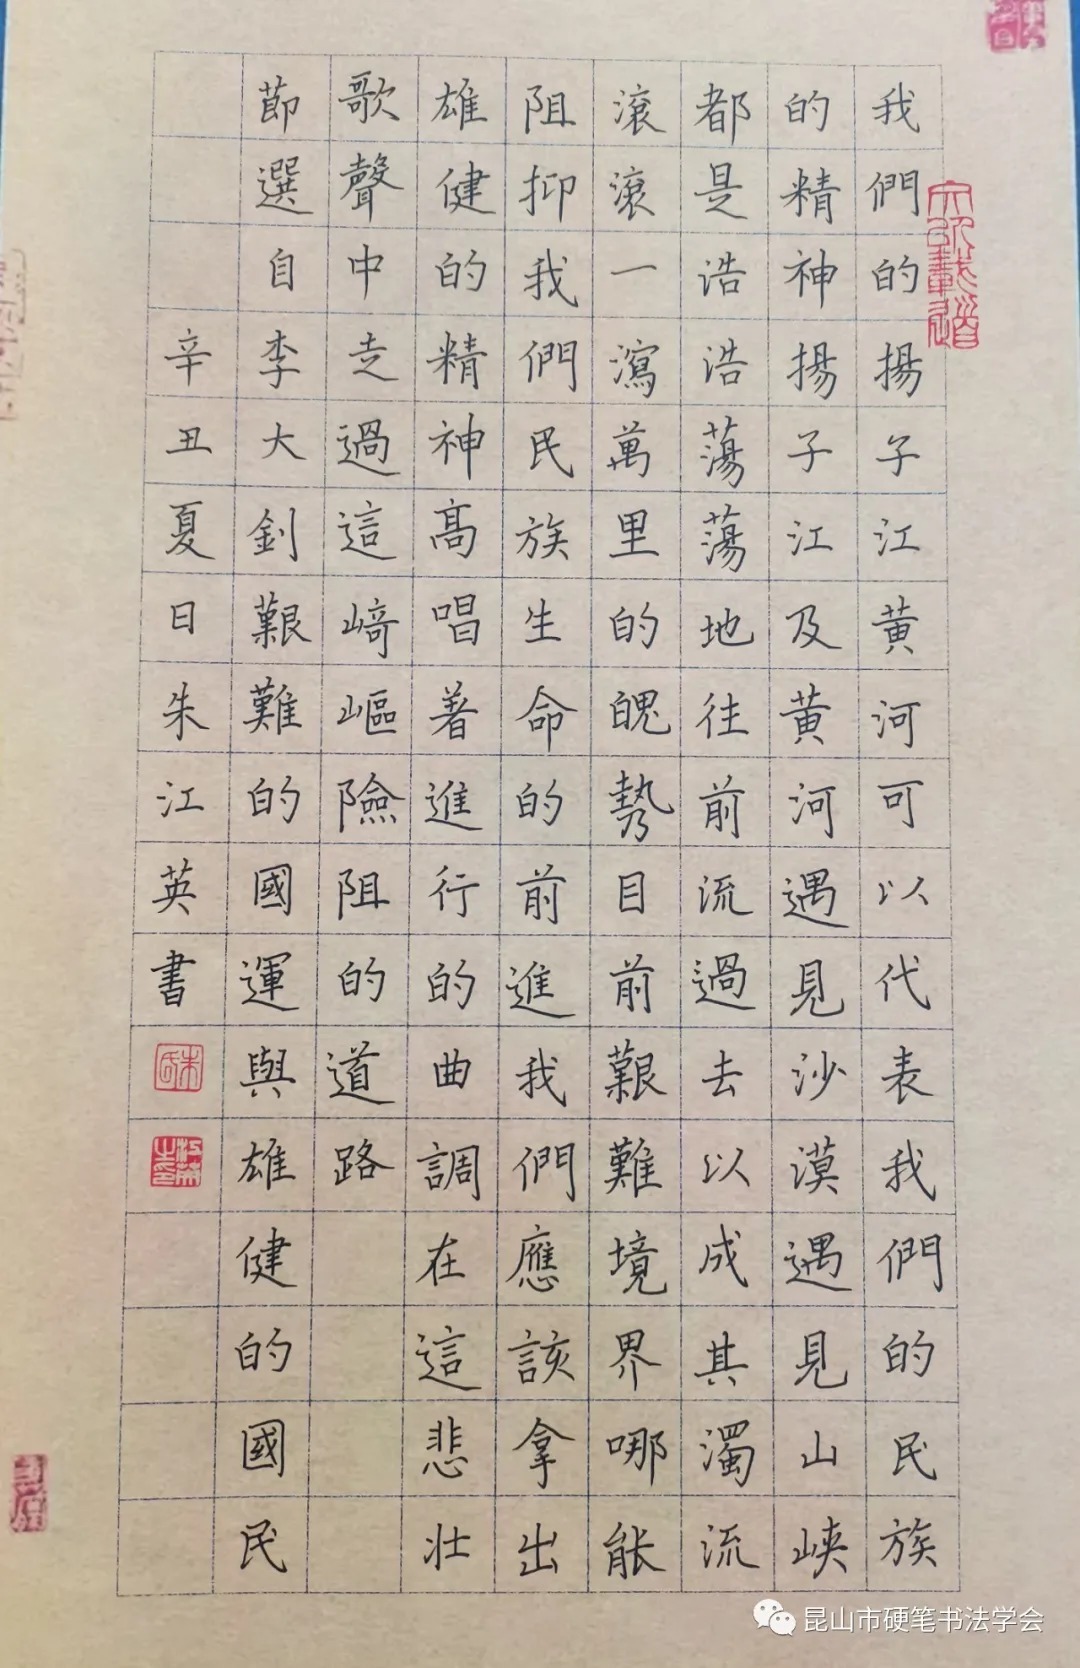 我們的揚子江黄河可以代表我們的民族
的精神揚子江及黄河遇見沙漠遇見山峽
都是浩浩蕩蕩地往前流過去以成其濁流
滾滾一瀉萬里的魄勢目前艱難境界哪能
阻抑我們民族生命的前進我們應該拿出
雄健的精神高唱著進行的曲調在這悲壯
歌聲中走過這崎嶇險阻的道路
節選自李大釗艱難的國運與雄健的國民
辛丑夏日朱江英書
文以載道
昆山市硬笔书法学会